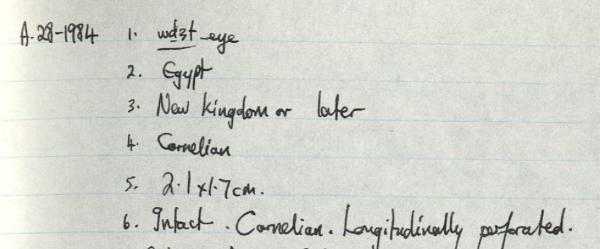 A.28-1984 1. wdꜣt-eye
2. Egypt
3. New Kingdom or later
4. Cornelian
5. 2.1 x 1.7 cm.
6. Intact. Cornelian. Longitudinally perforated.